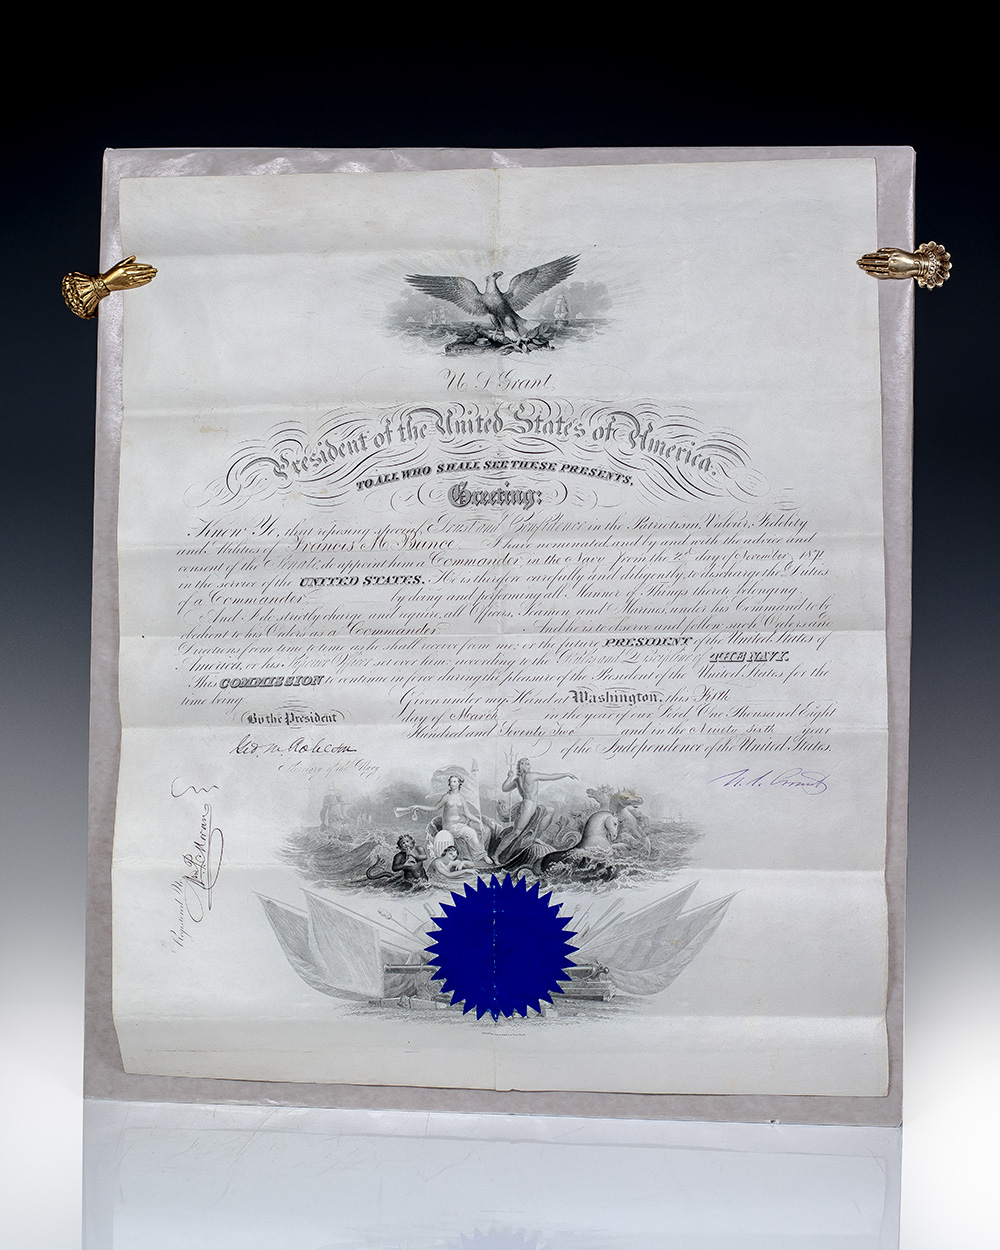 U S Grant
President of the United States of America.
TO ALL WHO SHALL SEE THESE PRESENTS,
Greeting:
Know Ye, that reposing special Trust and Confidence in the Patriotism, Valour, Fidelity
and Abilities of Francis M. Bunce I have nominated and by and with the advice and
consent of the Senate do appoint him a Commander in the Navy from the 2nd day of November 1871
in the service of the UNITED STATES. He is therefore carefully and diligently to discharge the Duties
of a Commander by doing and performing all Manner of Things thereto belonging
And I do strictly charge and require all Officers, Seamen and Marines, under his Command to be
obedient to his Orders as a Commander And he is to observe and follow such Orders and
Directions from time to time as he shall receive from me, or the future PRESIDENT of the United States of
America, or his Superior Officer set over him, according to the Rules and Discipline of THE NAVY.
This COMMISSION to continue in force during the pleasure of the President of the United States for the
time being
Given under my Hand at Washington, this Fifth
By the President
day of March in the year of our Lord One Thousand Eight
Hundred and Seventy Two and in the Ninety Sixth year
of the Independence of the United States.
Geo. M. Robeson
Secretary of the Navy
U. S. Grant
Registered
Wm P Moran